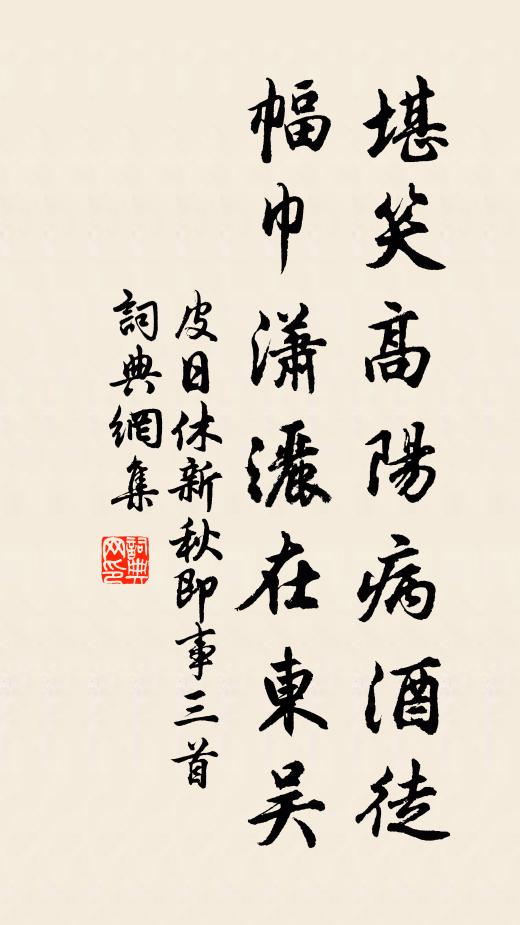 堪笑高陽病酒徒
幅巾瀟灑在東吳
皮日休新秋即事三首
詞典網集
詞典
网印